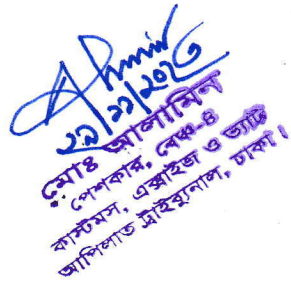 ২৯/১১/২০২৩
মোঃ আলামিন
পেশকার, বেঞ্চ-৪
কাস্টমস, এক্সাইজ ও ভ্যাট
আপিলাত ট্রাইব্যুনাল, ঢাকা।